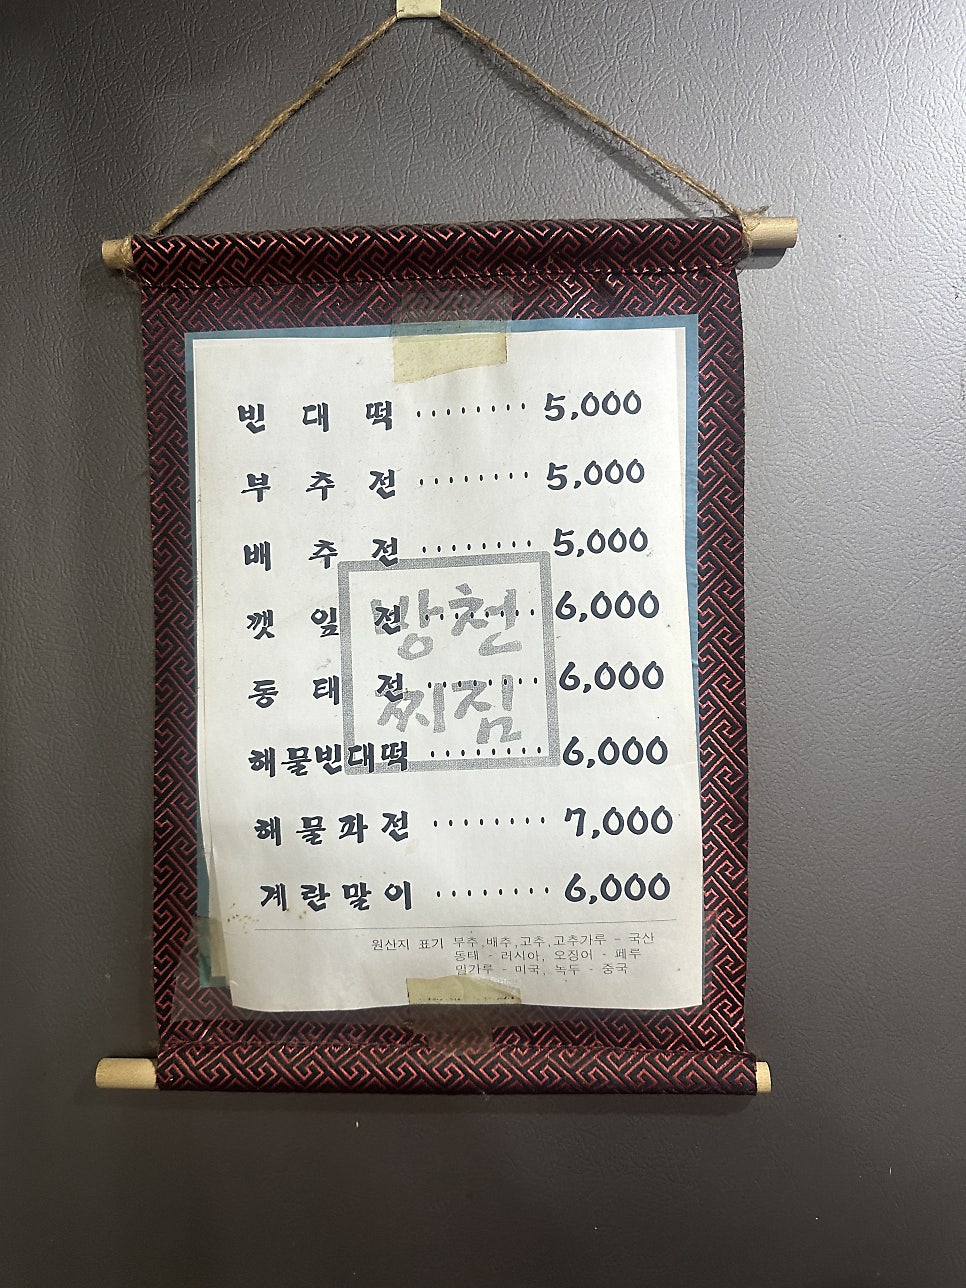 빈 대 떡 ········ 5,000
부 추 전 ········ 5,000
배 추 전 ········ 5,000
깻 잎 전 ········ 6,000
동 태 전 ········ 6,000
해물빈대떡 ········ 6,000
해 물 파 전 ········ 7,000
계 란 말 이 ········ 6,000
방천
찌짐
원산지 표기 부추,배추,고추,고추가루 - 국산
동태 - 러시아, 오징어 - 페루
밀가루 - 미국, 녹두 - 중국